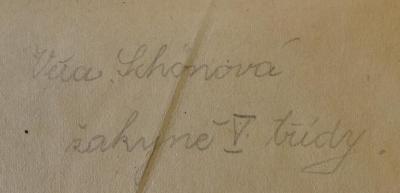 Věra Schönová
žákyně V. třídy.